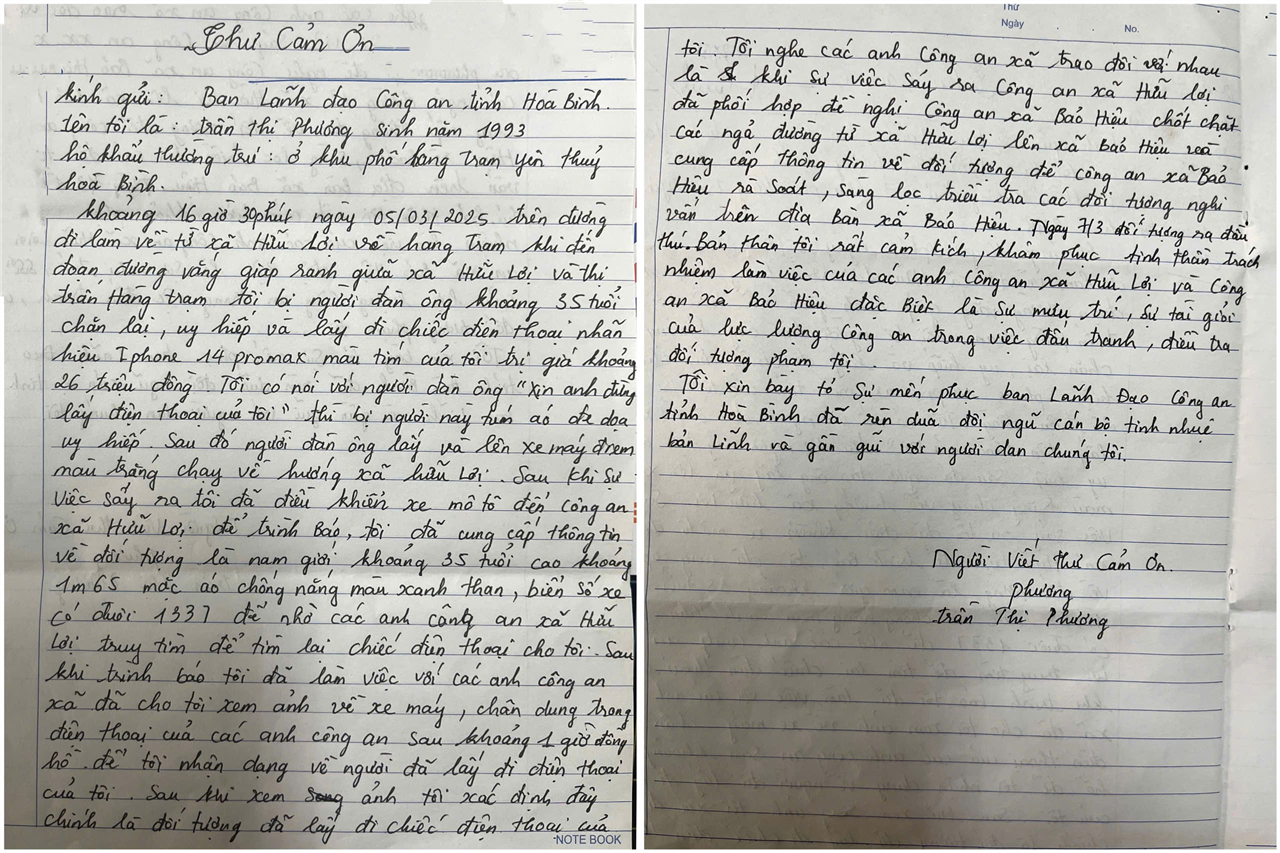 Thư Cảm Ơn
kính gửi : Ban Lãnh đạo Công an tỉnh Hoà Bình.
Tên tôi là : trần thị Phương sinh năm 1993
hộ khẩu thường trú : ở khu phố hàng Trạm yên thuỷ
hoà Bình.
khoảng 16 giờ 30 phút ngày 05/03/2025 trên đường
đi làm về từ xã Hữu Lợi về hàng Trạm khi đến
đoạn đường vắng giáp ranh giữa xã Hữu Lợi và thị
trấn Hàng trạm tôi bị người đàn ông khoảng 35 tuổi
chặn lại, uy hiếp và lấy đi chiếc điện thoại nhãn
hiệu Iphone 14 promax màu tím của tôi trị giá khoảng
26 triệu đồng Tôi có nói với người đàn ông "xin anh đừng
lấy điện thoại của tôi" thì bị người này túm áo đe doạ
uy hiếp. Sau đó người đàn ông lấy và lên xe máy drem
màu trắng chạy về hướng xã hữu Lợi. Sau khi sự
việc sảy ra tôi đã điều khiển xe mô tô đến công an
xã Hữu Lợi để trình Báo, tôi đã cung cấp thông tin
về đối tượng là nam giới khoảng 35 tuổi cao khoảng
1m65 mặc áo chống nắng màu xanh than, biển số xe
có đuôi 1337 để nhờ các anh công an xã Hữu
Lợi truy tìm để tìm lại chiếc điện thoại cho tôi. Sau
khi trình báo tôi đã làm việc với các anh công an
xã đã cho tôi xem ảnh về xe máy, chân dung trong
điện thoại của các anh công an sau khoảng 1 giờ đồng
hồ. để tôi nhận dạng về người đã lấy đi điện thoại
của tôi. Sau khi xem ảnh tôi xác định đây
chính là đối tượng đã lấy đi chiếc điện thoại của
NOTE BOOK
Thứ
Ngày No.
tôi. Tôi nghe các anh Công an xã trao đổi với nhau
là khi sự việc sảy ra Công an xã Hữu lợi
đã phối hợp đề nghị Công an xã Bảo Hiệu chốt chặt
các ngả đường từ xã Hữu Lợi lên xã Bảo Hiệu và
cung cấp thông tin về đối tượng để công an xã Bảo
Hiệu rà soát, sàng lọc triều tra các đối tượng nghi
vấn trên địa Bàn xã Bảo Hiệu. Ngày 7/3 đối tượng ra đầu
thú. Bản thân tôi rất cảm kích, khâm phục tinh thần trách
nhiệm làm việc của các anh Công an xã Hữu Lợi và Công
an xã Bảo Hiệu đặc Biệt là sự mưu trí, sự tài giỏi
của lực lượng Công an trong việc đấu tranh, điều tra
đối tượng phạm tội.
Tôi xin bày tỏ Sự mến phục ban Lãnh Đạo Công an
tỉnh Hoà Bình đã rèn dũa đội ngũ cán bộ tinh nhuệ
bản Lĩnh và gần gũi với người dan chúng tôi.
Người Viết thư Cảm Ơn.
phương
trần Thị Phương